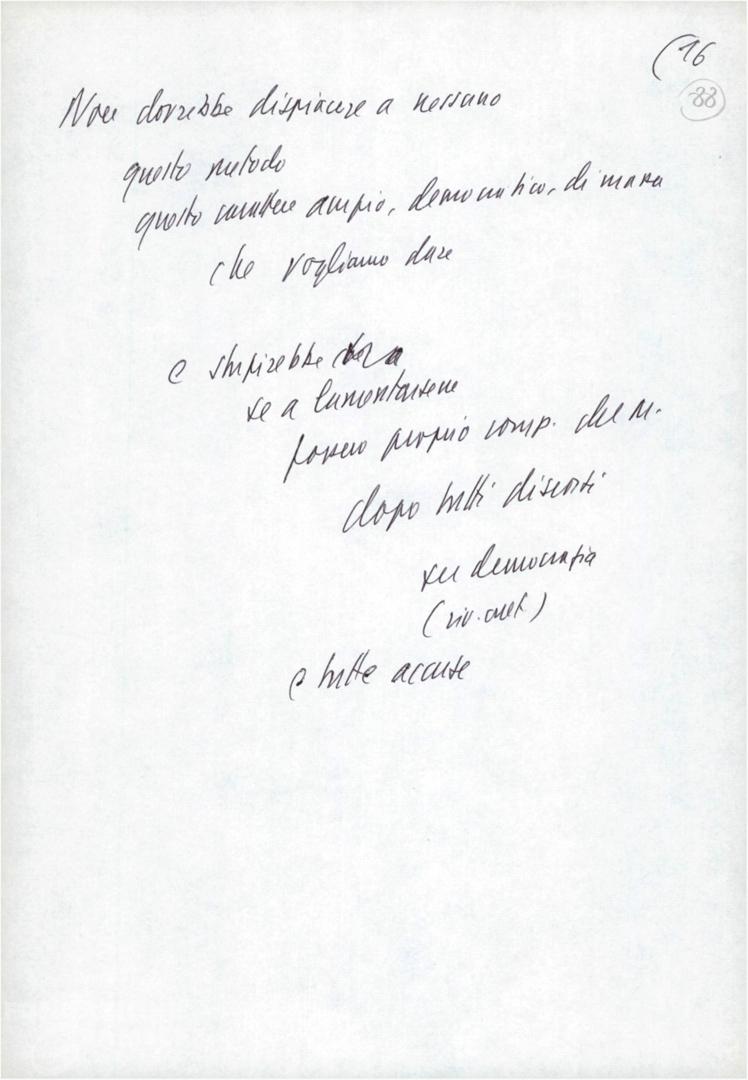 (16
88
Non dovrebbe dispiacere a nessuno
questo metodo
questo carattere ampio, democratico, di massa
che vogliamo dare
e stupirebbe
se a lamentarsene
fossero proprio comp. del M.
dopo tutti discorsi
su democrazia
(riv. cult.)
e tutte accuse